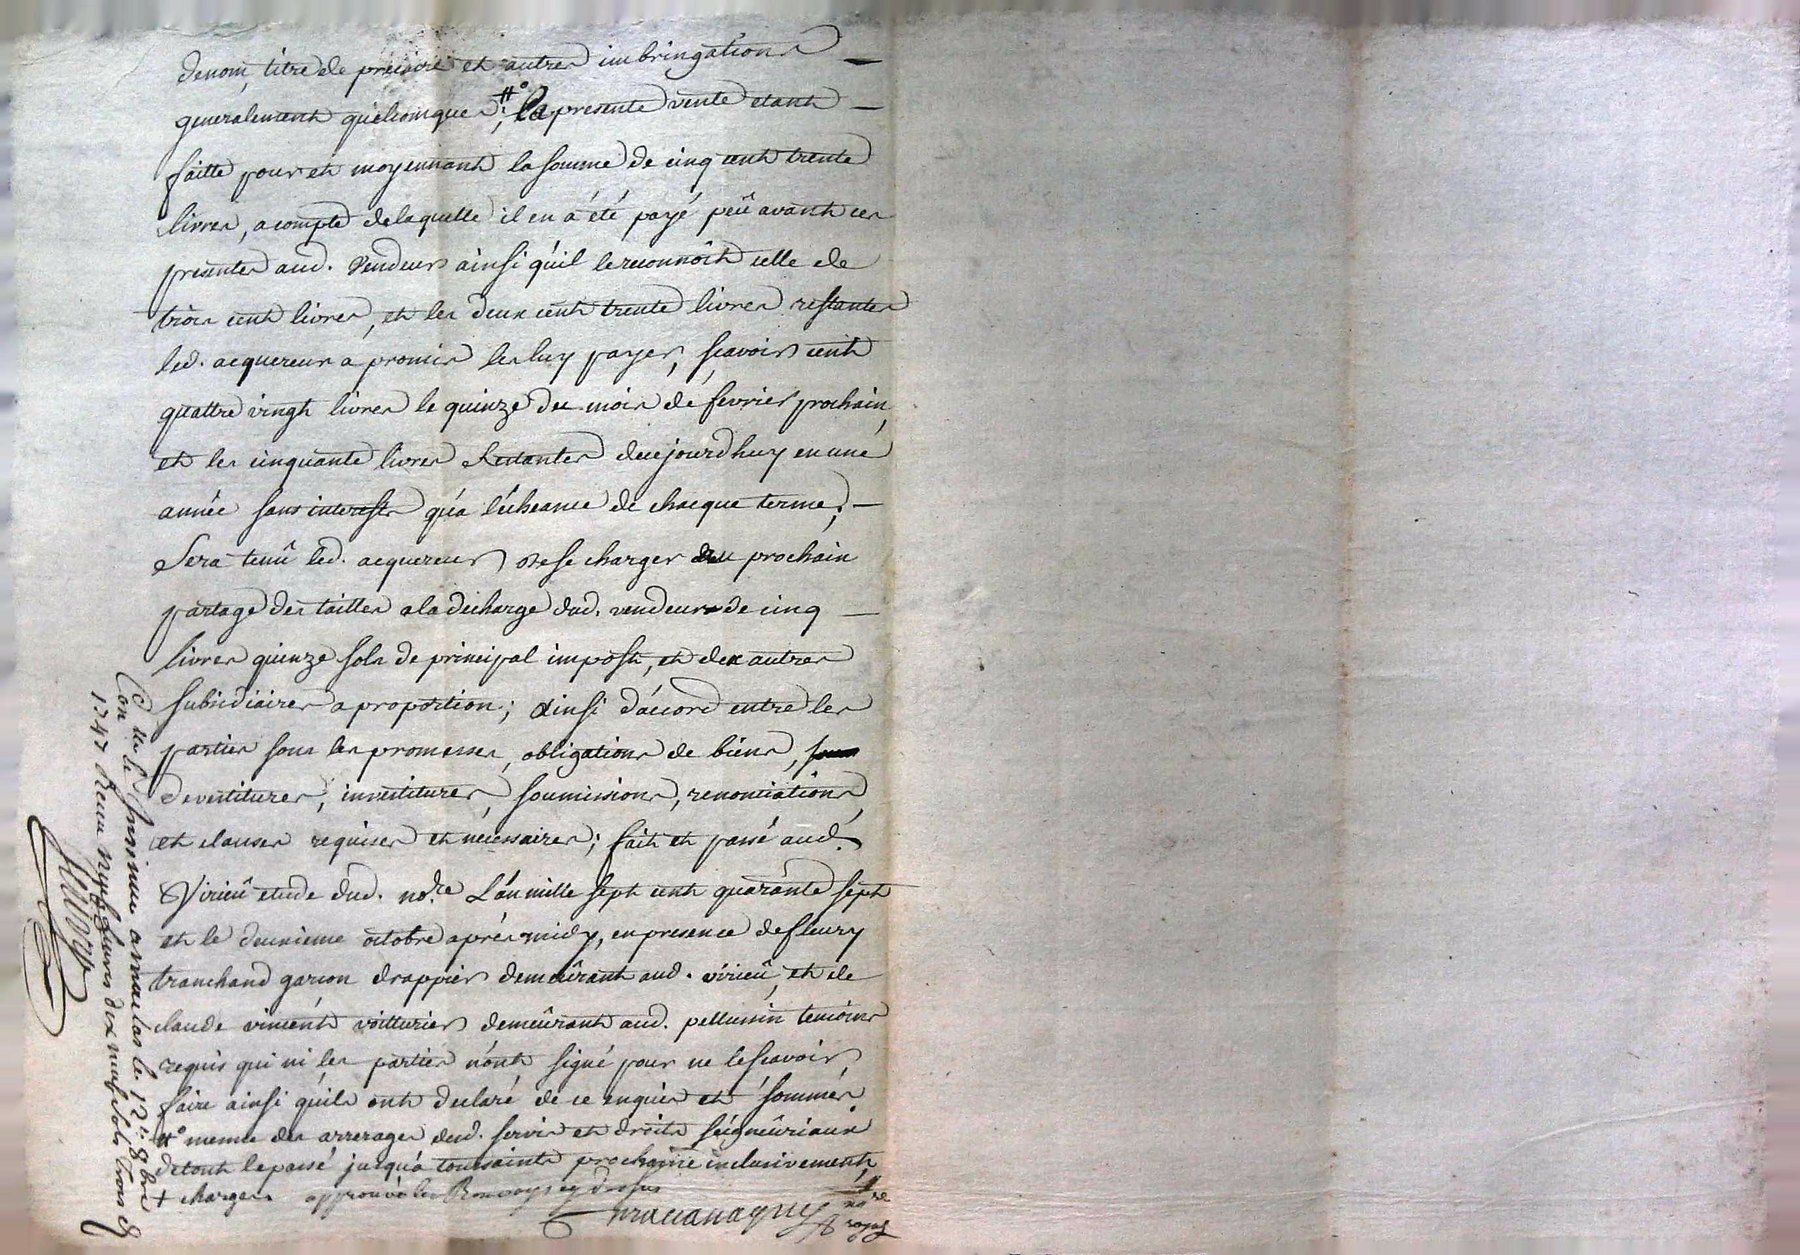 denom, titre de precaire et autres imbringations
generalement quelconques #°; la presente vente etant
faitte pour et moyennant la somme de cinq cent trente
livres, a compte de laquelle il en a été payé peû avant ces
presentes aud. vendeur ainsi qu'il le reconnôit celle de
trois cent livres, et les deux cent trente livres restantes
led. acquereur a promis les luy payer, scavoir cent
quattre vingt livres le quinze du mois de fevrier prochain,
et les cinquante livres restantes de ce jourd'huy en une
année sans interests qu'a l'écheance de chacque terme;
Sera tenû led. acquereur de se charger au prochain
partage des tailles a la decharge dud. vendeur de cinq
livres quinze sols de principal impost, et des autres
subsidiaires a proportion; ainsi d'accord entre les
parties sous les promesses, obligations de biens,
devestitures, investitures, soumissions, renontiations
et clauses requises et nécessaires; fait et passé aud.
Virieû etude dud. no.re L'an mille sept cent quarante sept
et le deuxieme octobre aprés midy, en presence de fleury
tranchand garcon drappier demeûrant aud. virieû, et de
claude vincent voitturier demeûrant aud. pellussin temoins
requis qui ni les parties n'ont signé pour ne le scavoir
faire ainsi qu'ils ont declaré de ce enquis et sommés
#° mesme des arrerages desd. servis et droits seigneûriaux
de tout le passé jusqu'a toussaints prochaine inclusivement,
+ charges approuvé les Renvoys cy dessus
no.re
royal
Con.lé & insinué a le 12.e 8bre
1747 Receu neuf sols trois d.